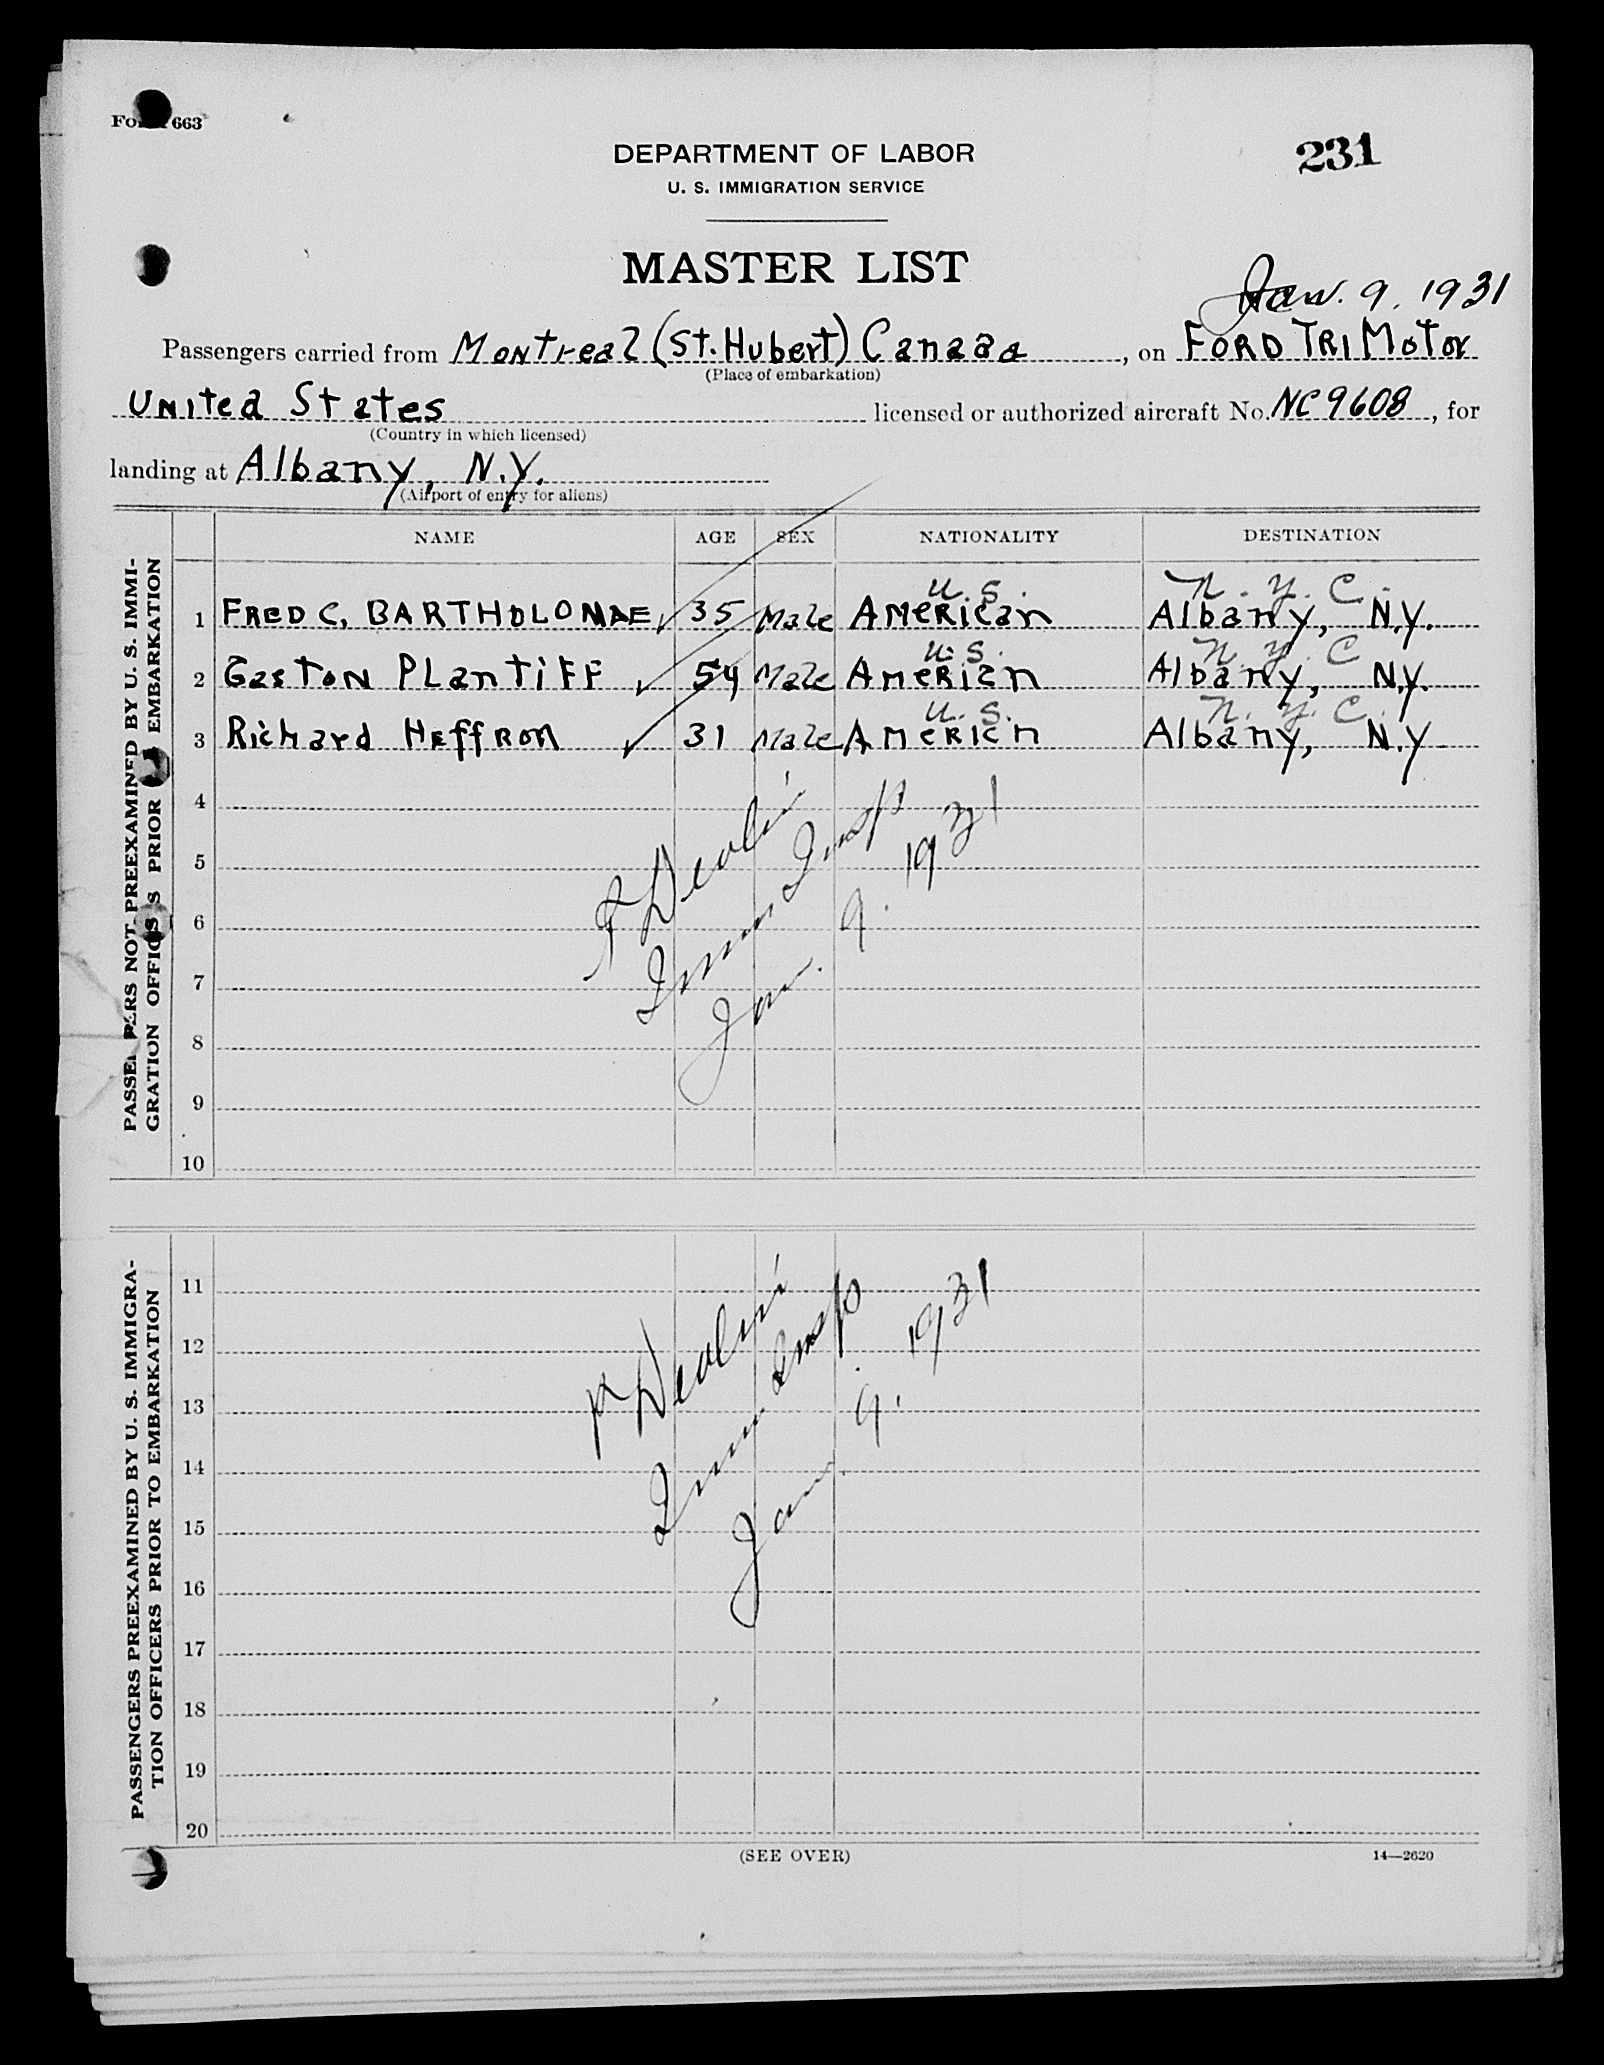 Form 663
231
DEPARTMENT OF LABOR
U. S. IMMIGRATION SERVICE
MASTER LIST
Jan. 9. 1931
Passengers carried from Montreal (St. Hubert) Canada, on FORD TRI MoTor
(Place of embarkation)
United States licensed or authorized aircraft No. NC9608, for
(Country in which licensed)
landing at Albany, N.Y.
(Airport of entry for aliens)
NAME AGE SEX NATIONALITY DESTINATION
PASSENGERS NOT PREEXAMINED BY U. S. IMMI-
GRATION OFFICERS PRIOR TO EMBARKATION
U.S. N.Y.C.
1 FRED C. BARTHOLOMAE 35 Male American Albany, N.Y.
U.S. N.Y.C
2 Gaston PLantiff 54 Male American Albany, N.Y.
U.S. N.Y.C.
3 Richard Heffron 31 Male Americn Albany, N.Y
4
5
6
7
8
9
10
P Devlin
Imm Insp
Jan. 9. 1931
PASSENGERS PREEXAMINED BY U. S. IMMIGRA-
TION OFFICERS PRIOR TO EMBARKATION
11
12
13
14
15
16
17
18
19
20
P Devlin
Imm Insp
Jan. 9. 1931
(SEE OVER)
14—2620